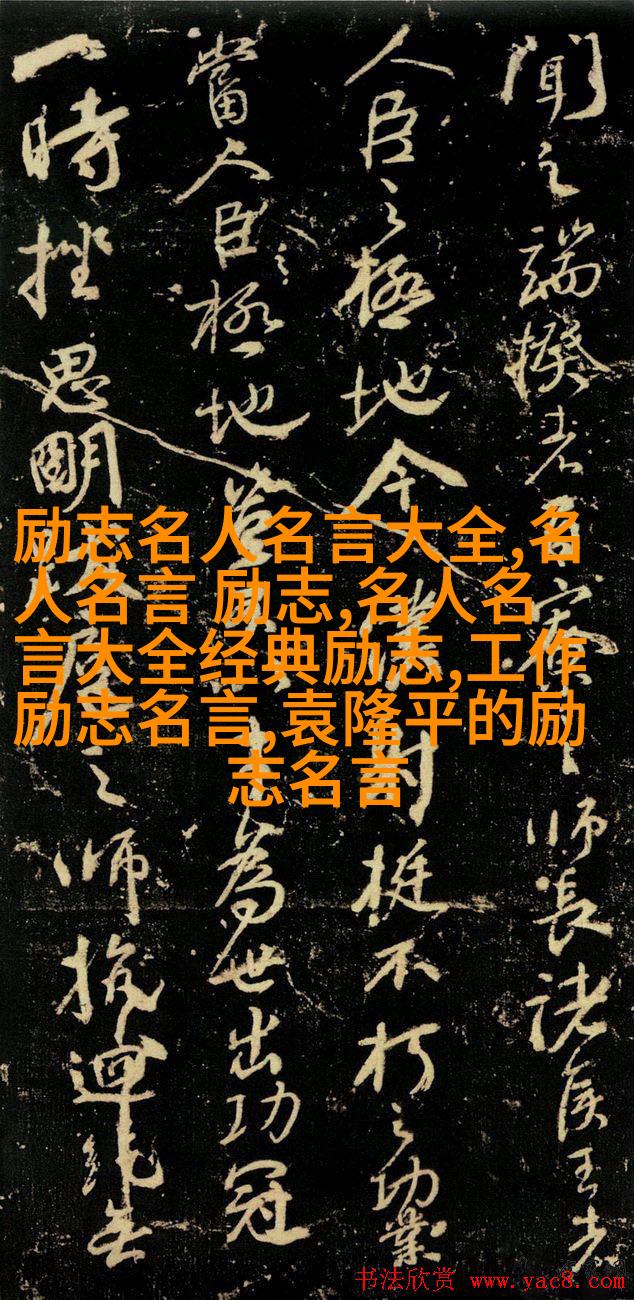 聞之端揆者百寮之師長諸侯王者
人臣之極地今僕射挺不朽之功業
當人臣之極地豈為世出功冠
一時挫思明之師抗迴紇無
励志名人名言大全,名
人名言 励志,名人名
言大全经典励志,工作
励志名言,袁隆平的励
志名言
书法欣赏 www.yac8.com